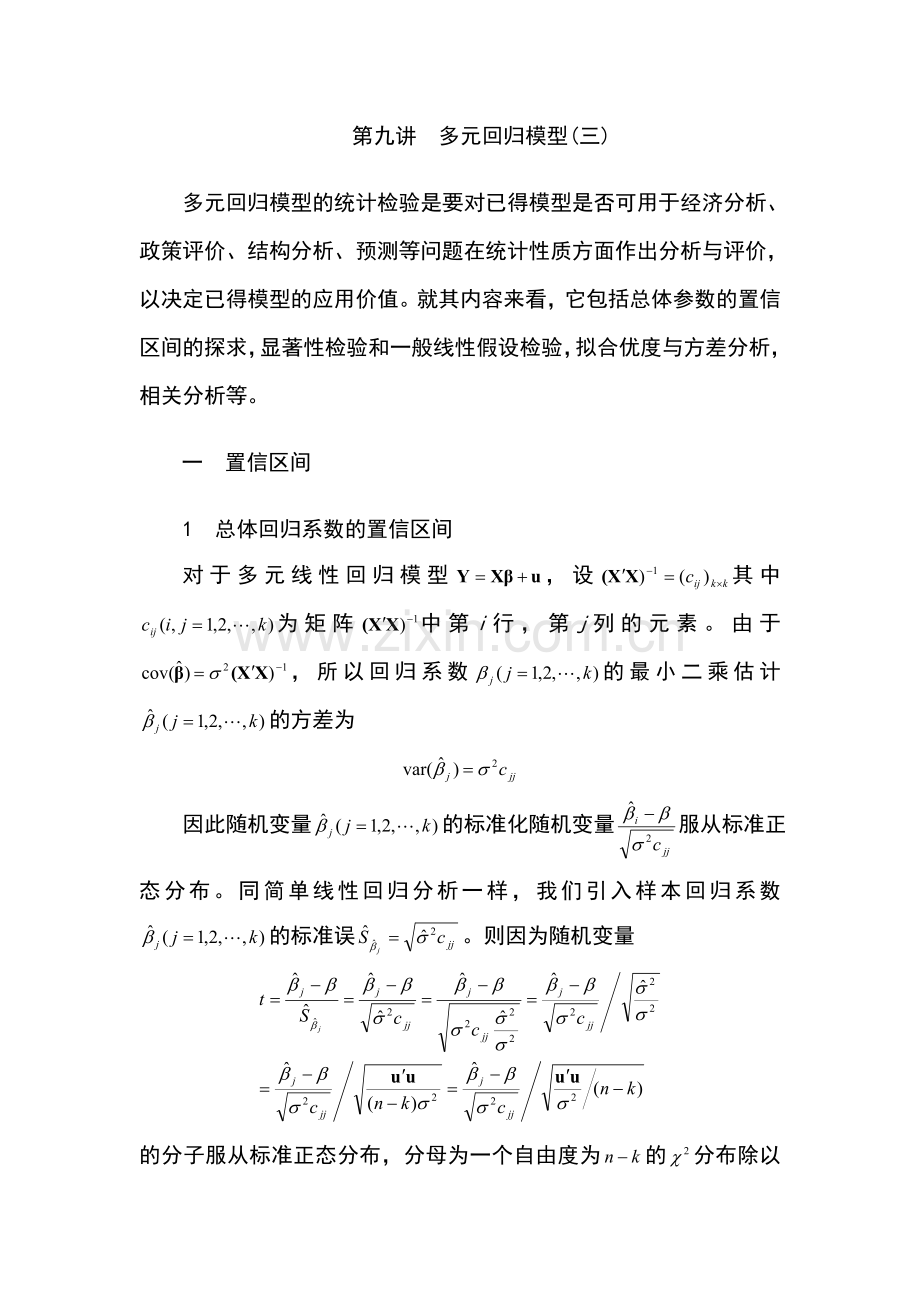 第九讲　多元回归模型(三)
多元回归模型的统计检验是要对已得模型是否可用于经济分析、
政策评价、结构分析、预测等问题在统计性质方面作出分析与评价,
以决定已得模型的应用价值。就其内容来看, 它包括总体参数的置信
区间的探求, 显著性检验和一般线性假设检验, 拟合优度与方差分析,
相关分析等。
一　置信区间
1　总体回归系数的置信区间
对于多元线性回归模型 Y = Xβ + u , 设 (X′X)⁻¹ = (c_{ij})_{k×k} 其中
c_{ij}(i, j = 1,2,⋯,k) 为矩阵 (X′X)⁻¹ 中第 i 行, 第 j 列的元素。由于
cov(β̂) = σ²(X′X)⁻¹ , 所以回归系数 β_j(j = 1,2,⋯,k) 的最小二乘估计
β̂_j(j = 1,2,⋯,k) 的方差为
var(β̂_j) = σ²c_{jj}
因此随机变量 β̂_j(j = 1,2,⋯,k) 的标准化随机变量 (β̂_i − β)/√(σ²c_{jj}) 服从标准正
态分布。同简单线性回归分析一样, 我们引入样本回归系数
β̂_j(j = 1,2,⋯,k) 的标准误 Ŝ_{β̂_j} = √(σ̂²c_{jj}) 。则因为随机变量
t = (β̂_j − β)/Ŝ_{β̂_j} = (β̂_j − β)/√(σ̂²c_{jj}) = (β̂_j − β)/√(σ²c_{jj} σ̂²/σ²) = (β̂_j − β)/√(σ²c_{jj}) / √(σ̂²/σ²)
= (β̂_j − β)/√(σ²c_{jj}) / √(u′u/((n−k)σ²)) = (β̂_j − β)/√(σ²c_{jj}) / √((u′u/σ²)/(n−k))
的分子服从标准正态分布, 分母为一个自由度为 n−k 的 χ² 分布除以
www.zixin.com.cn